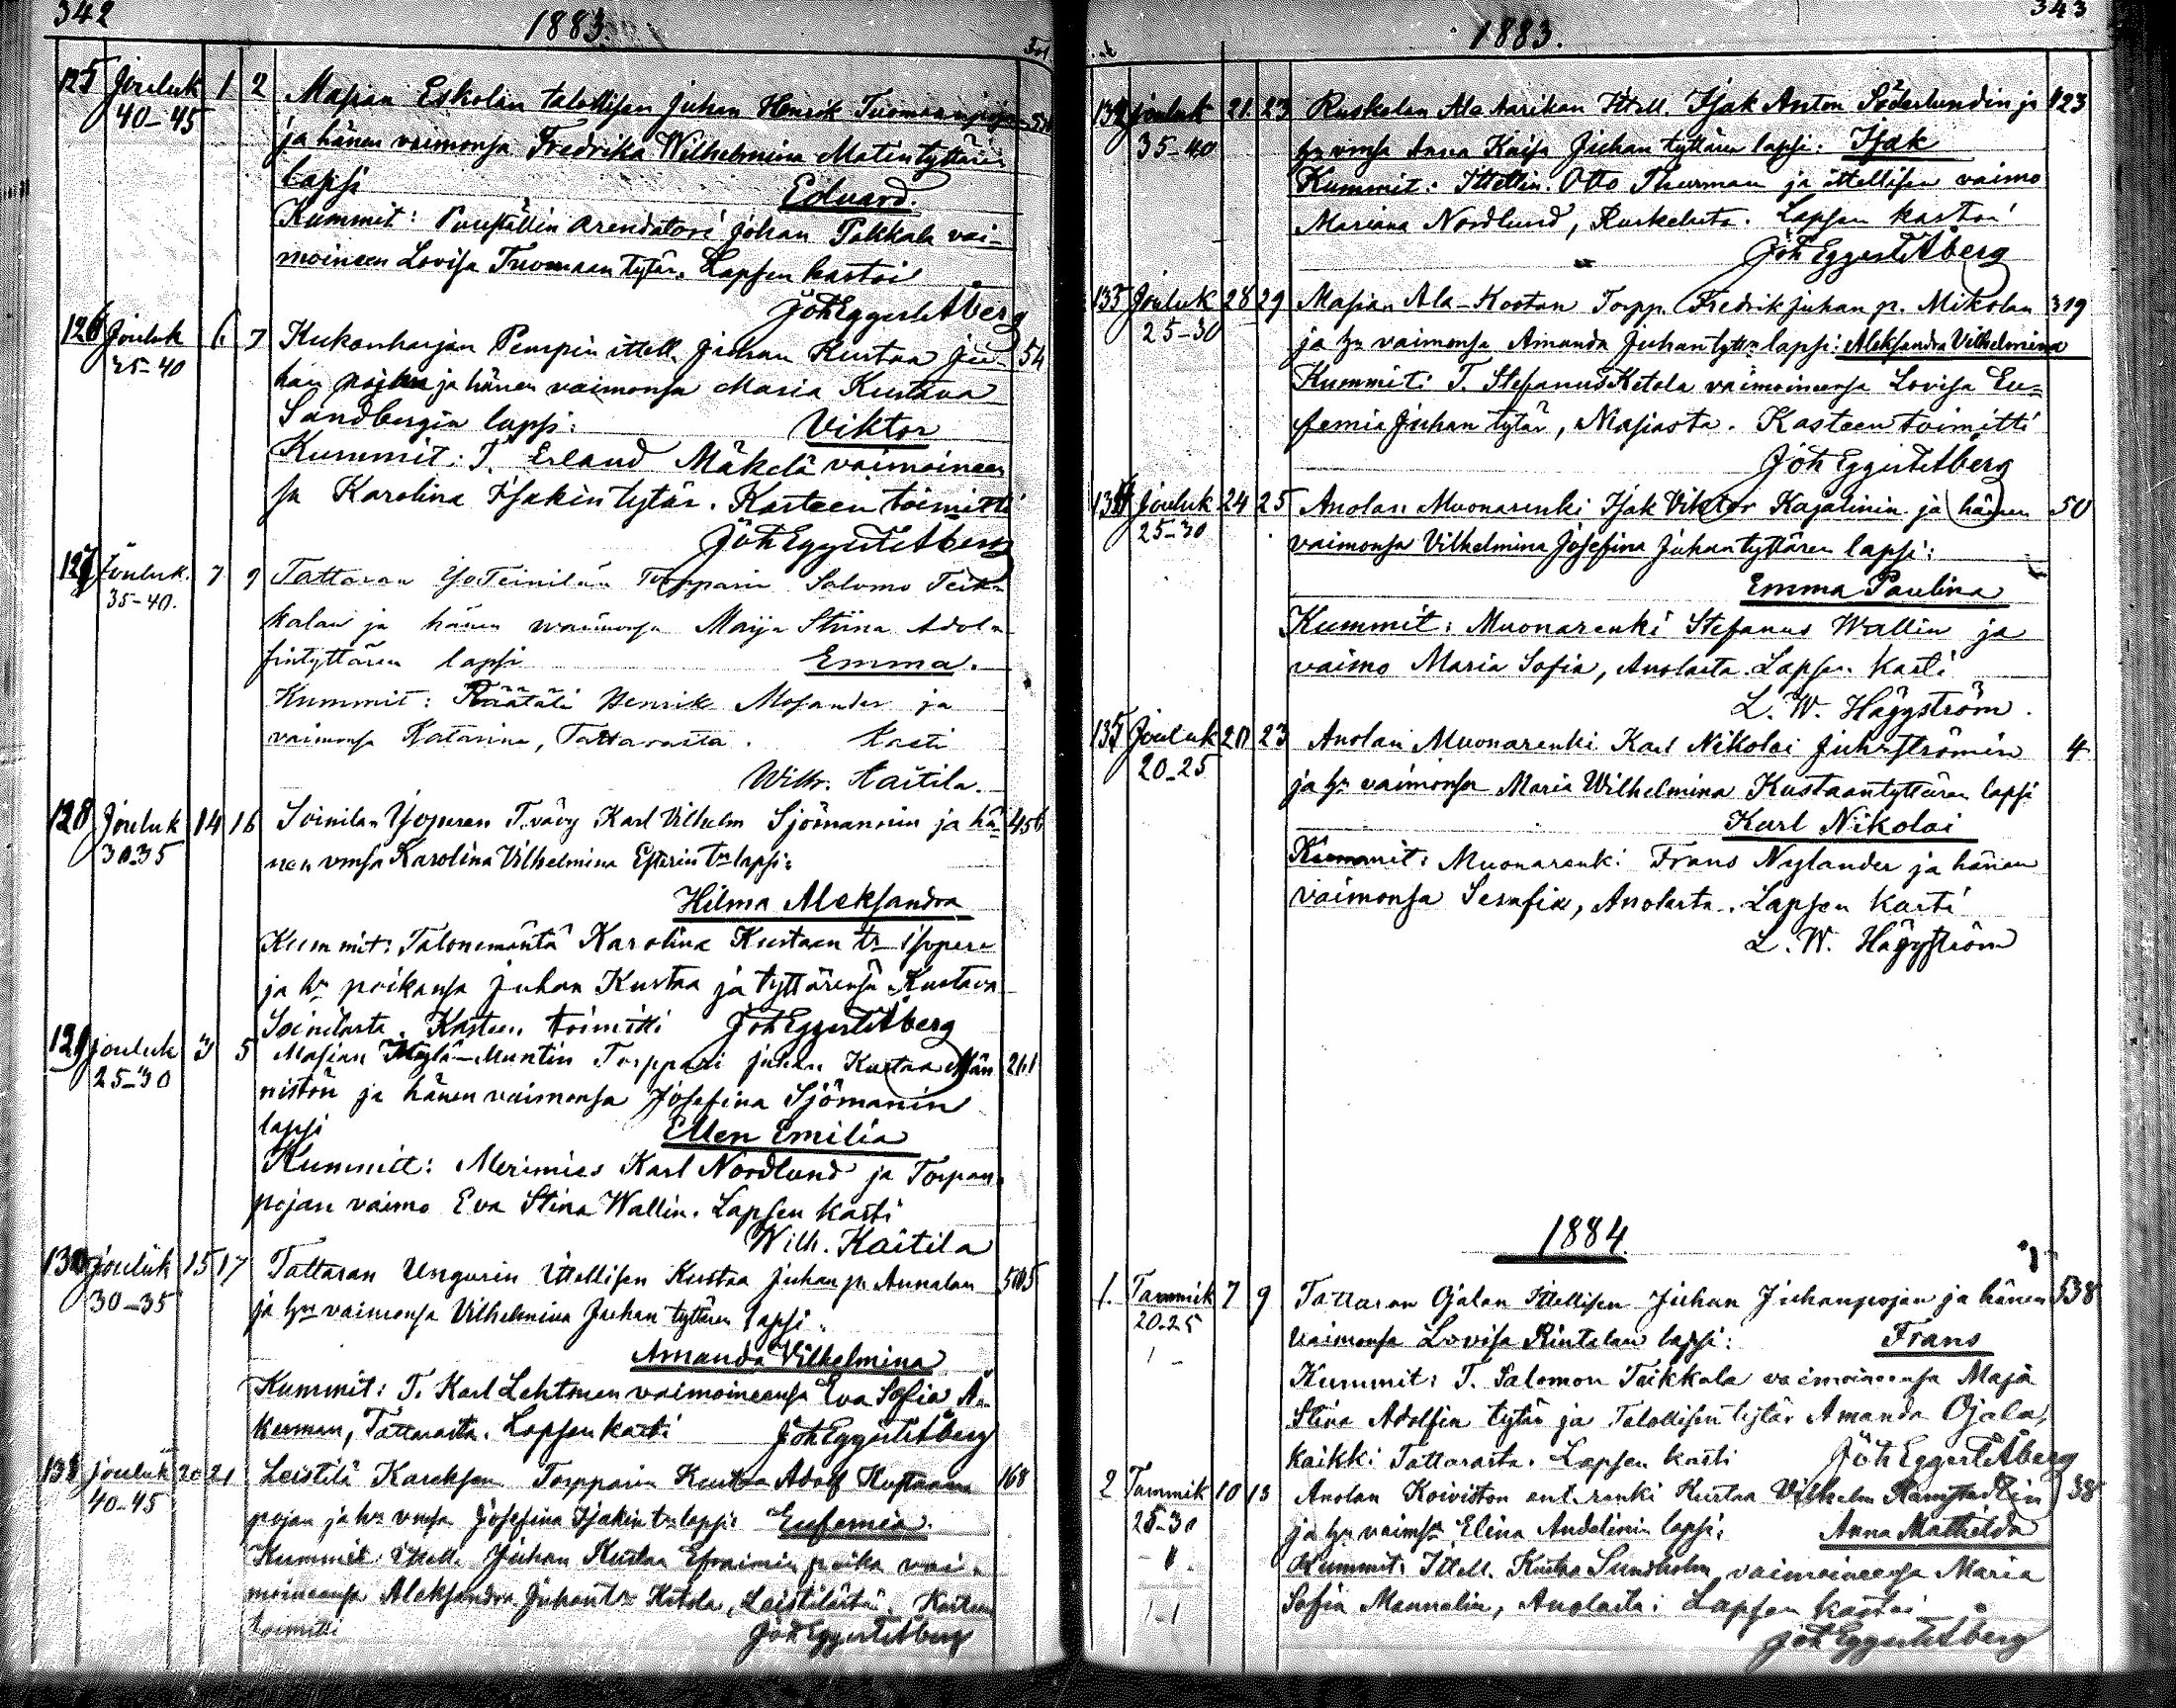 342
1883.
125 Jouluk 1 2 Masian Eskolan talollisen Juhan Henrik Tuomaanpojan
40-45 ja hänen vaimonsa Fredrika Wilhelmina Matintyttären
lapsi Eduard.
Kummit: Puuställin arendatori Johan Pakkala vai-
moineen Lovisa Tuomaan tytär. Lapsen kastoi
Joh Eggert Åberg
126 Jouluk 6. 7 Kukonharjan Pempin ittell. Juhan Kustaa Ju- 54
35-40 han pojan ja hänen vaimonsa Maria Kustava
Sandbergin lapsi: Viktor
Kummit: T. Erland Mäkelä vaimoineen
sa Karolina Isakin tytär. Kasteen toimitti
Joh Eggert Åberg
127 Jouluk. 7 9 Tattaran Torpparin Salomo Teik-
35-40. kalan ja hänen waimonsa Maija Stiina Adol-
fintyttären lapsi Emma.
Kummit: Räätäli Henrik Mosander ja
vaimonsa Katarina, Tattarasta. Kasti
Wilh. Kaitila.
128 Jouluk 14 16 Soinilan Yoperen T. vävy Karl Vilhelm Sjömannin ja hä- 456
30-35 nen vmsa Karolina Vilhelmina Esterin tr lapsi:
Hilma Aleksandra
Kummit: Talonemäntä Karolina Kustaan tr Isopere
ja hn poikansa Juhan Kustaa ja tyttärensä Kustava
Soinilasta. Kasteen toimitti Joh Eggert Åberg
129 Jouluk 3 5 Masian Torppari Juhan Kustaa Män 261
25-30 nistön ja hänen vaimonsa Josefina Sjömanin
lapsi Ellen Emilia
Kummit: Merimies Karl Nordlund ja Torpan
pojan vaimo Eva Stina Wallin. Lapsen kasti
Wilh. Kaitila
130 Jouluk 15 17 Tattaran Ungurin ittellisen Kustaa Juhan p. Annalan 505
30-35 ja hn vaimonsa Vilhelmina Juhan tyttären lapsi.
Amanda Vilhelmina
Kummit: T. Karl Lehtonen vaimoineensa Eva Sofia Å-
kerman, Tattarasta. Lapsen kasti Joh Eggert Åberg
131 Jouluk 20 21 Leistilä Kareksen Torpparin Kustaa Adolf Kustaan 168
40-45 pojan ja hn vmsa Josefina Isakin tr lapsi: Eufemia.
Kummit: ittell. Juhan Kustaa Efraimin poika vai-
moineensa Aleksandra Juhan tr Ketola, Leistilästä. Kasteen
toimitti Joh Eggert Åberg
343
1883.
132 Jouluk 21. 23 Ruskelan Ala Ittell. Isak Anton Söderlundin ja 123
35-40 hn vmsa Anna Kaisa Juhan tyttären lapsi. Isak
Kummit: Ittellin. Otto Thurman ja ittellisen vaimo
Mariana Nordlund, Ruskelasta. Lapsen kastoi
Joh Eggert Åberg
133 Jouluk 28 29 Masian Ala-Kootan Torpp. Fredrik Juhan p. Mikolan 319
25-30 ja hn vaimonsa Amanda Juhan tyttn lapsi: Aleksandra Vilhelmina
Kummit: T. Stefanus Ketola vaimoineensa Lovisa Eu-
femia Juhan tytär, Masiasta. Kasteen toimitti
Joh Eggert Åberg
134 Jouluk 24 25 Anolan Muonarenki Isak Viktor Kajalinin ja hänen 50
25-30 vaimonsa Vilhelmina Josefina Juhantyttären lapsi:
Emma Paulina
Kummit: Muonarenki Stefanus Wallin ja
vaimo Maria Sofia, Anolasta. Lapsen kasti
L. W. Häggström.
135 Jouluk 20 23 Anolan Muonarenki Karl Nikolai Juhrströmin 4
20-25 ja hn vaimonsa Maria Wilhelmina Kustaantyttären lapsi
Karl Nikolai
Kummit: Muonarenki Frans Nylander ja hänen
vaimonsa Serafia, Anolasta. Lapsen kasti
L. W. Häggström
1884.
1. Tammik 7 9 Tattaran Ojalan Ittellisen Juhan Juhanpojan ja hänen 538
20-25 vaimonsa Lovisa Rintalan lapsi: Frans
Kummit: T. Salomon Teikkala vaimoineensa Maja
Stina Adolfin tytär ja Talollisen tytär Amanda Ojala,
kaikki Tattarasta. Lapsen kasti Joh Eggert Åberg
2 Tammik 10 13 Anolan Koiviston ent. renki Kustaa Vilhelm Ramstedtin 38
25-30 ja hn vaimsa Elina Andelinin lapsi: Anna Mathilda
Kummit: Ittell. Kustaa Sundholm vaimoineensa Maria
Sofia Mannelin, Anolasta: Lapsen kastoi
Joh Eggert Åberg